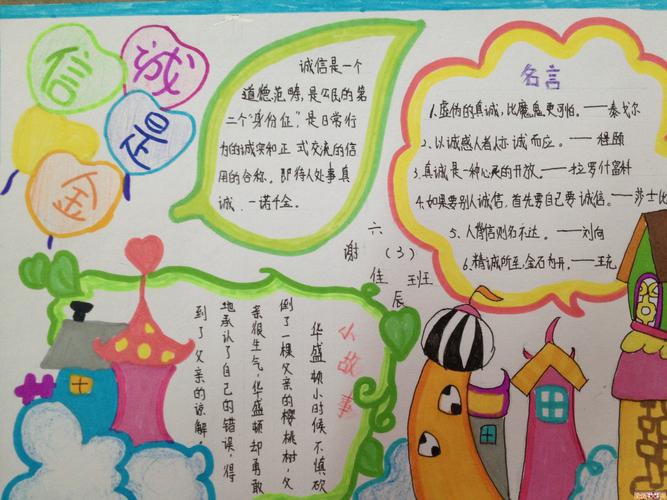 诚信是金
诚信是一个
道德范畴,是公民的第
二个"身份证",是日常行
为的诚实和正式交流的信
用的合称。即待人处事真
诚、一诺千金。
名言
1.虚伪的真诚,比魔鬼更可怕。——泰戈尔
2.以诚感人者人亦诚而应。——程颐
3.真诚是一种心灵的开放。——拉罗什富科
4.如果要别人诚信,首先要自己要诚信。——莎士比
5、人背信则名不达。——刘向
6.精诚所至,金石为开。——王充
六(3)班
谢佳辰
小故事
华盛顿小时候不慎砍
倒了一棵父亲的樱桃树,父
亲很生气,华盛顿却勇敢
地承认了自己的错误,得
到了父亲的谅解。